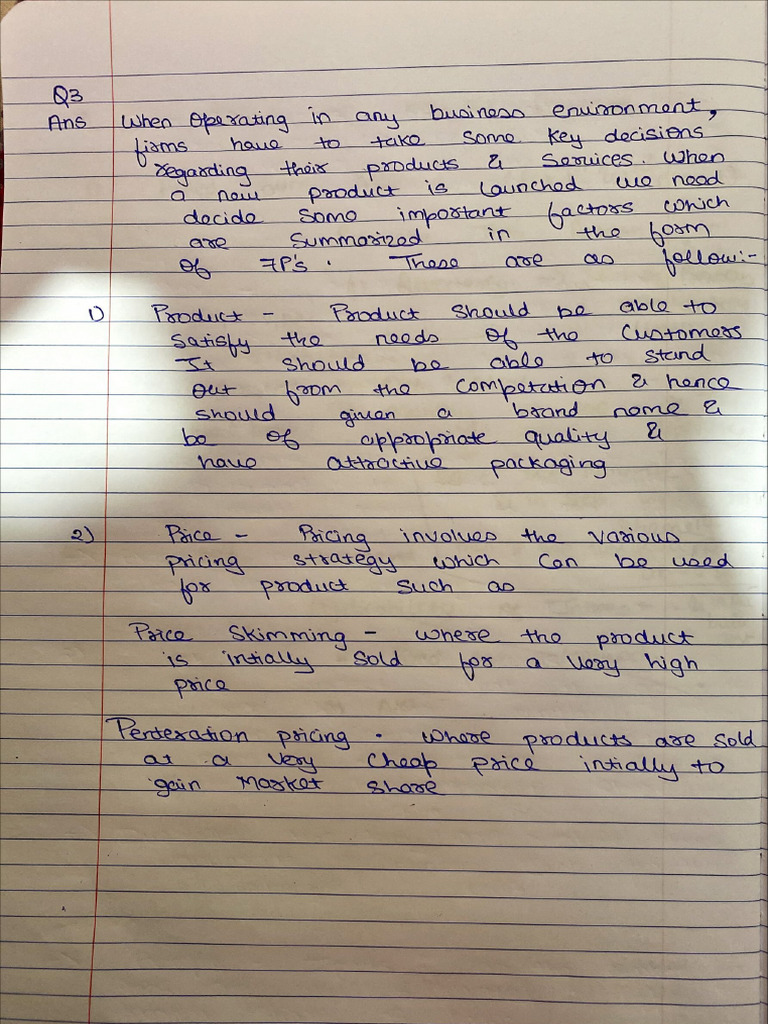 Q3
Ans When operating in any business environment,
firms have to take some key decisions
regarding their products & services. When
a new product is launched we need
decide some important factors which
are summarized in the form
of 7P's. These are as follow:-
1) Product - Product should be able to
satisfy the needs of the customers
It should be able to stand
out from the competation & hence
should given a brand name &
be of appropriate quality &
have attractive packaging
2) Price - Pricing involves the various
pricing strategy which can be used
for product such as
Price Skimming - where the product
is intially sold for a very high
price
Penteration pricing . where products are sold
at a very cheap price intially to
gain market share